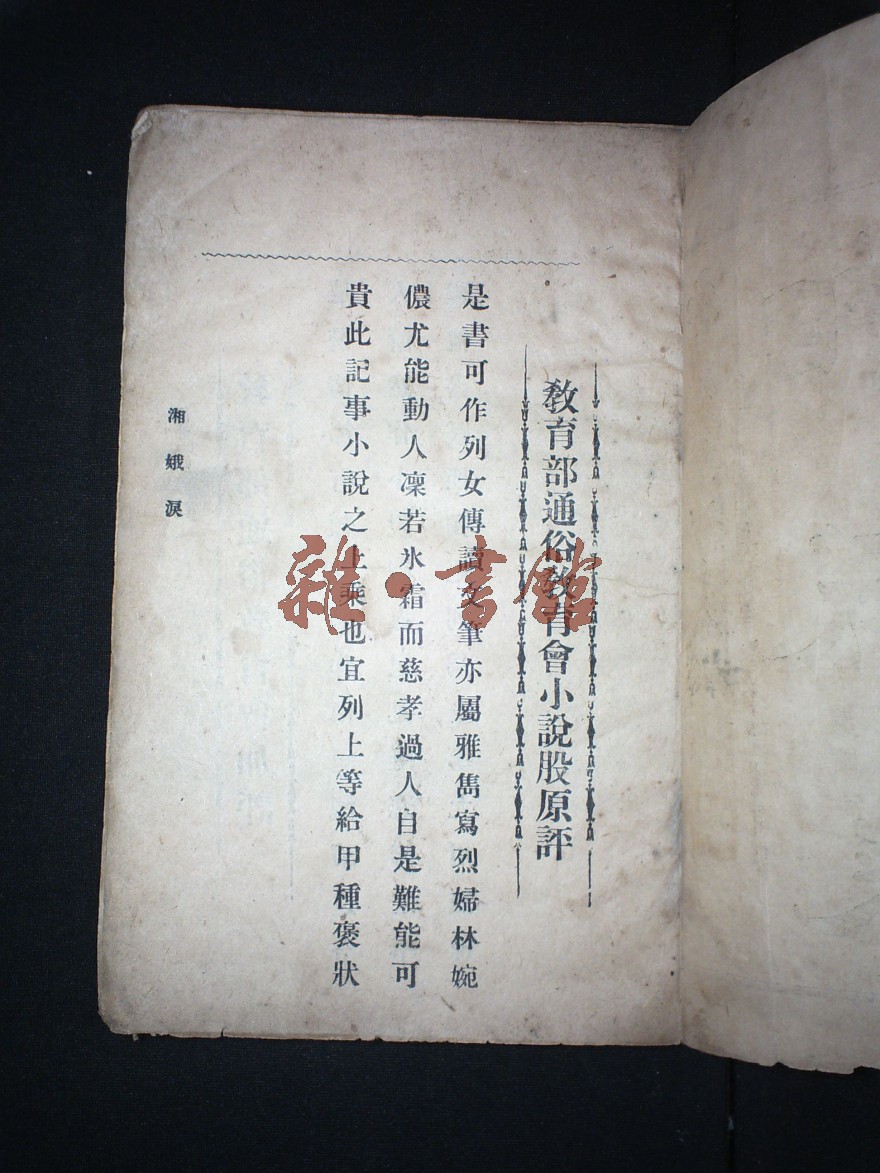 教育部通俗教育會小說股原評
是書可作列女傳讀文筆亦屬雅雋寫烈婦林婉
儂尤能動人凜若氷霜而慈孝過人自是難能可
貴此記事小說之上乘也宜列上等給甲種褒狀
湘娥淚
雜·書館